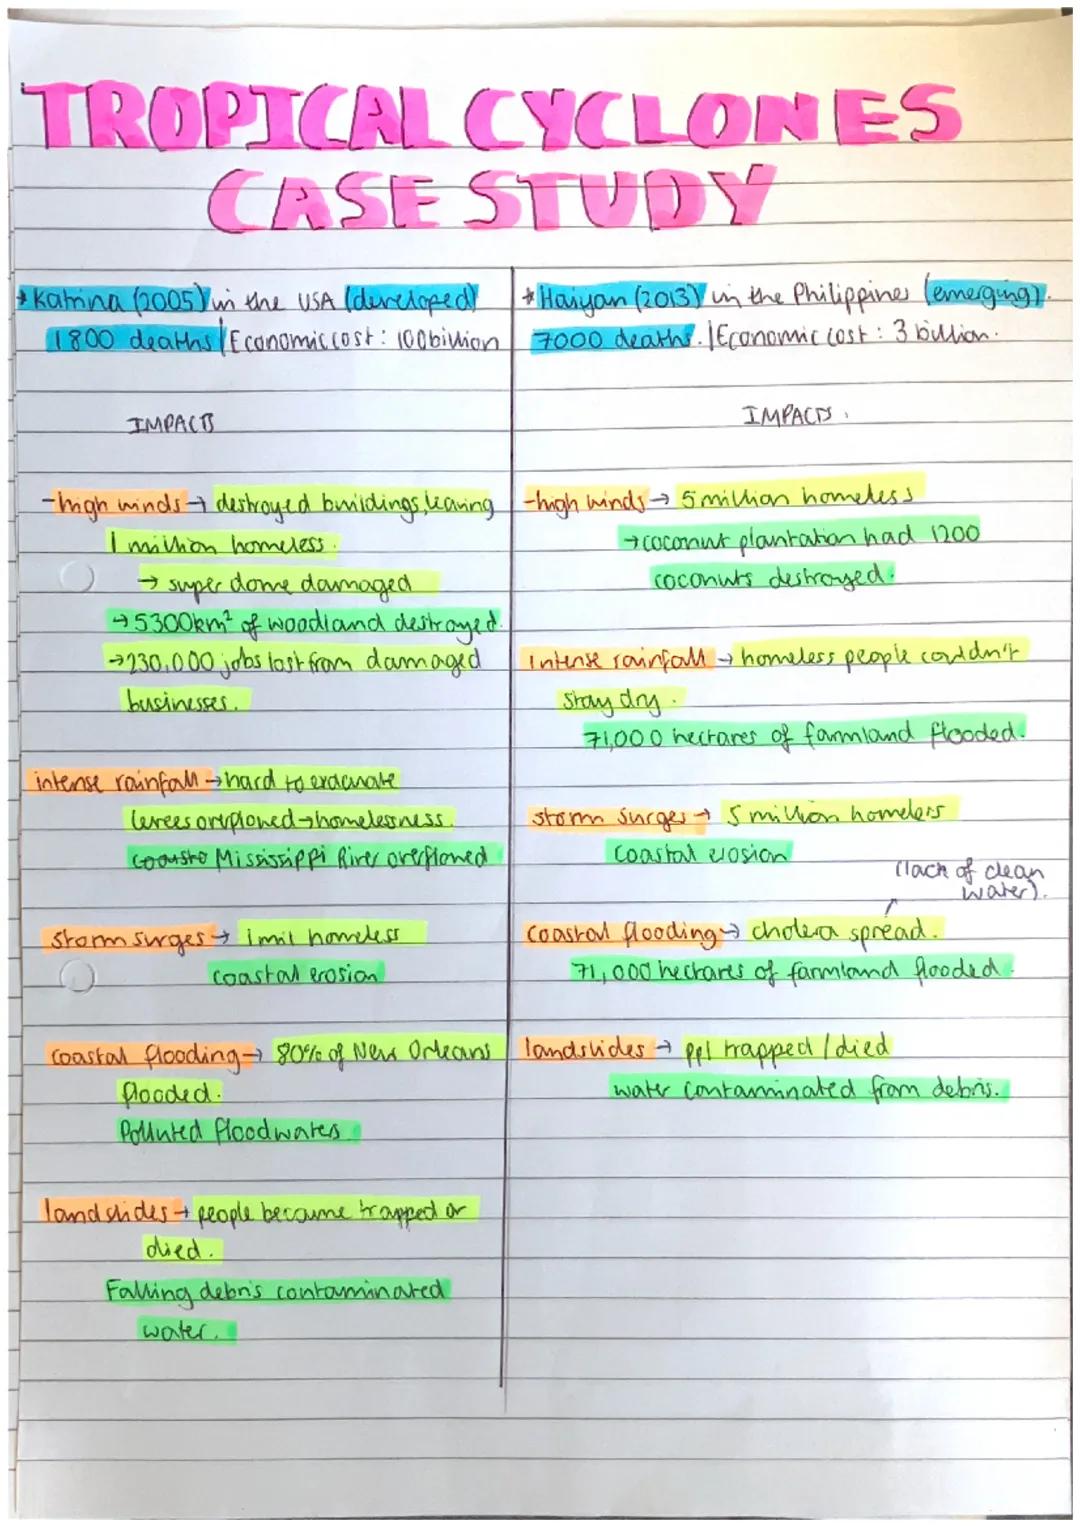 TROPICAL CYCLONES
CASE STUDY
* Katrina (2005) in the USA (developed)
1800 deaths | Economic cost: 100billion
IMPACTS
- high winds → destroyed buildings, leaving
1 million homeless.
→ super dome damaged
→ 5300km² of woodland destroyed.
→ 230,000 jobs lost from damaged
businesses.
intense rainfall → hard to evacuate
levees overflowed → homelessness.
Mississippi River overflowed
storm surges → 1 mil homeless
coastal erosion
coastal flooding → 80% of New Orleans
flooded.
Polluted floodwaters.
landslides → people became trapped or
died.
Falling debris contaminated
water.
* Haiyan (2013) in the Philippines (emerging).
7000 deaths. | Economic cost: 3 billion.
IMPACTS.
- high winds → 5 million homeless
→ coconut plantation had 1200
coconuts destroyed.
intense rainfall → homeless people couldn't
stay dry.
71,000 hectares of farmland flooded.
storm surges → 5 million homeless
coastal erosion
(lack of clean
water).
coastal flooding → cholera spread.
71,000 hectares of farmland flooded.
landslides → ppl trapped / died
water contaminated from debris.